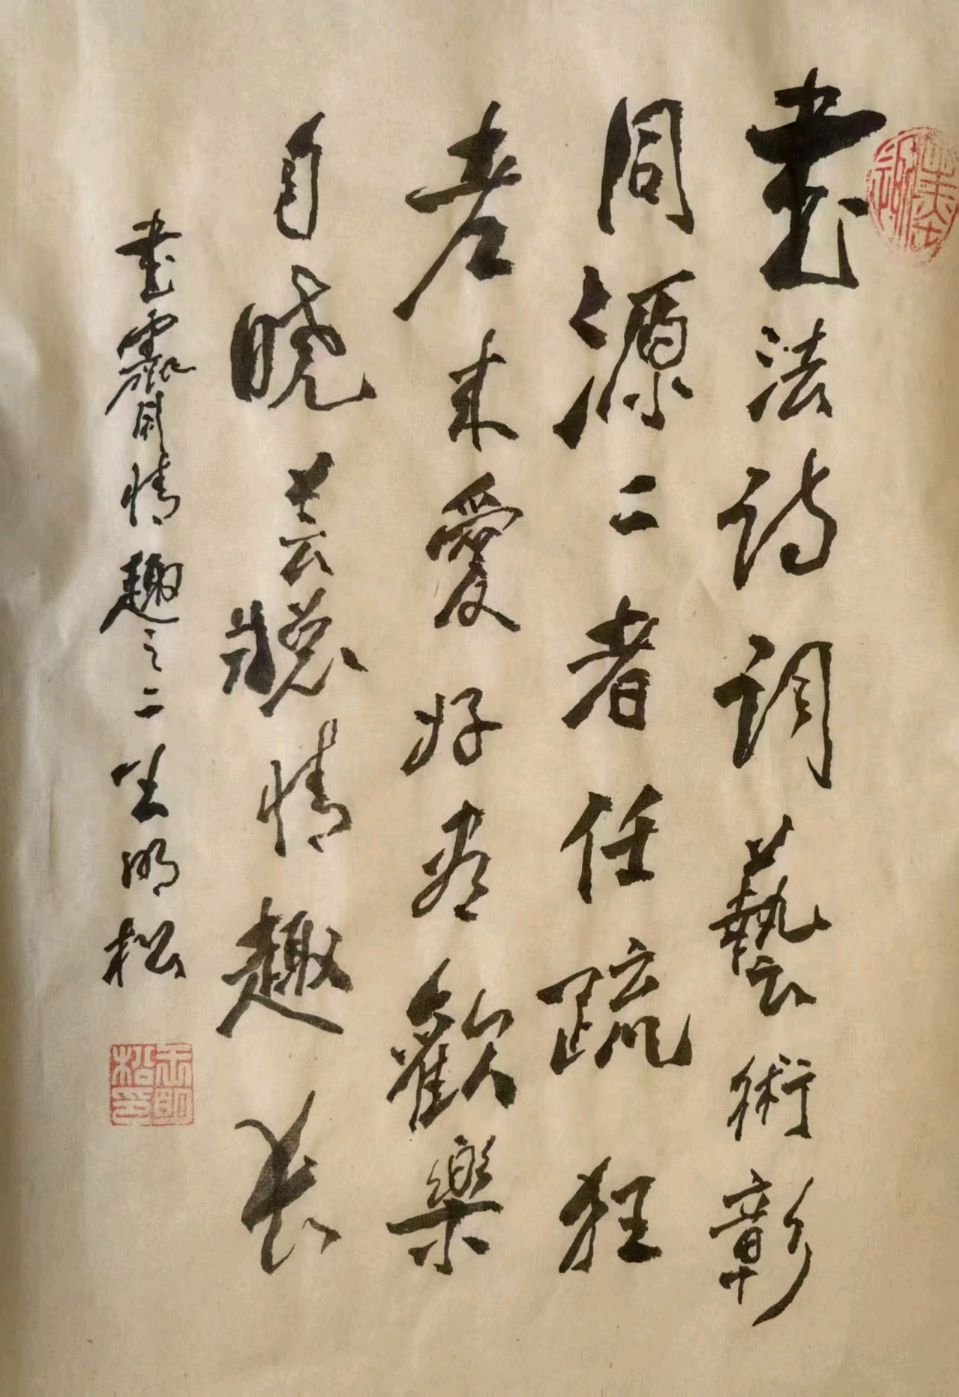 書法詩詞藝術彰
同源二者任疏狂
老来愛好歡樂
自曉芸牕情趣長
書齋情趣之二 王明松